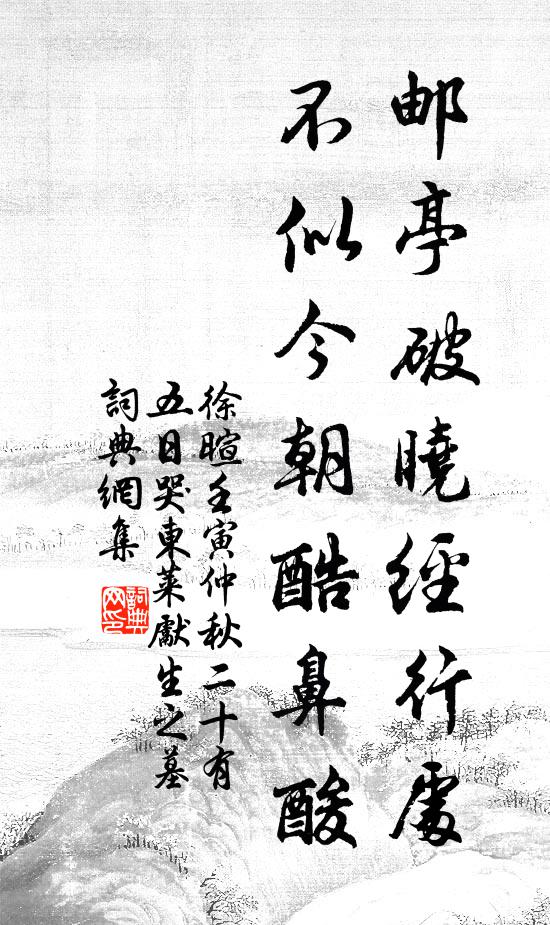 邮亭破曉經行處
不似今朝酷鼻酸
徐暄壬寅仲秋二十有
五日哭東萊獻生之墓
詞典網集
詞典網印